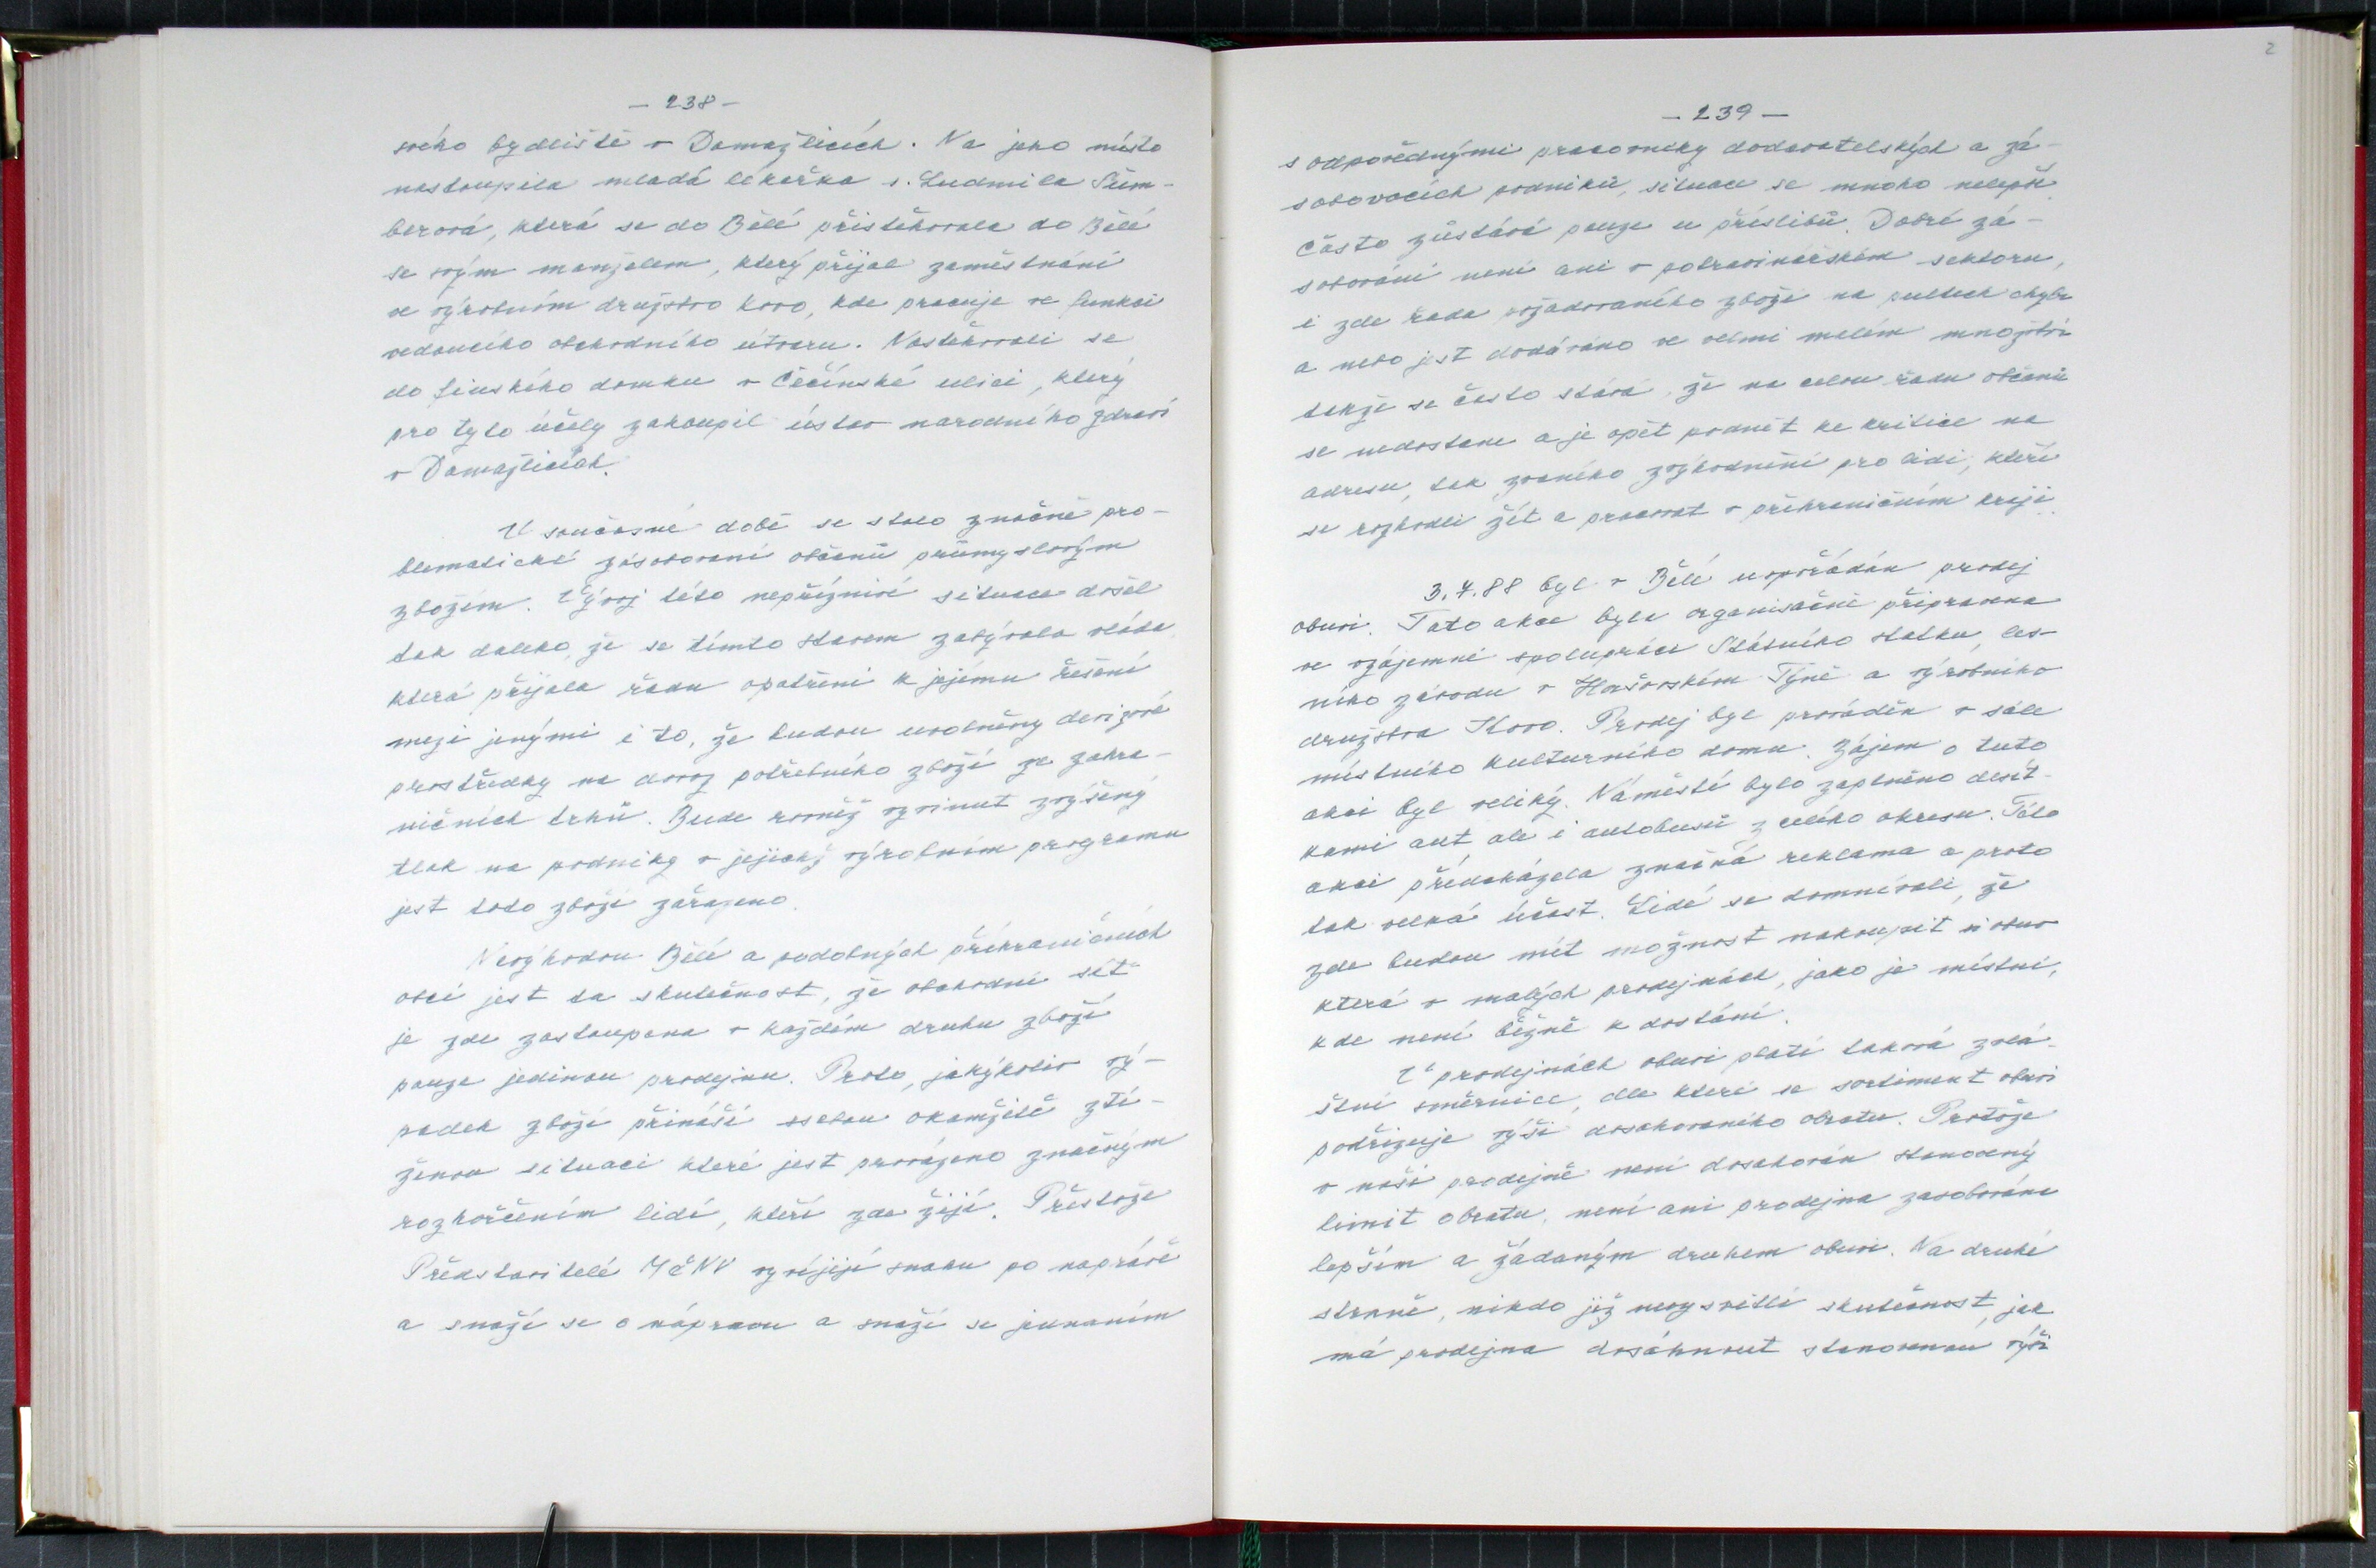 - 238 -
svého bydliště v Domažlicích. Na jeho místo
nastoupila mladá lékařka s. Ludmila Šim-
berová, která se do Bělé přistěhovala do Bělé
se svým manželem, který přijal zaměstnání
ve výrobním družstvo Kovo, kde pracuje ve funkci
vedoucího obchodního útvaru. Nastěhovali se
do finského domku v Čečínské ulici, který
pro tyto účely zakoupil ústav narodního zdraví
v Domažlicích.
V současné době se stalo značně pro-
blematické zásobovaní občanů průmyslovým
zbožím. Vývoj této nepříznivé situace došel
tak daleko, že se tímto stavem zabývala vláda
která přijala řadu opatření k jejímu řešení
mezi jenými i to, že budou uvolněny devizové
prostředky na dovoz potřebného zboží ze zahra-
ničních trhů. Bude rovněž vyvinut zvýšený
tlak na podniky v jejichž výrobním programu
jest toto zboží zařazeno.
Nevýhodou Bělé a podobných příhraničních
obcí jest ta skutečnost, že obchodní síť
je zde zastoupena v každém druhu zboží
pouze jedinou prodejnu. Proto, jakýkoliv vý-
padek zboží přináší sebou okamžitě ztí-
ženou situaci které jest provázeno značným
rozhořčením lidí, kteří zde žijí. Přestože
Představitelé MěNV vyvíjejí snahu po nápravě
a snaží se o nápravu a snaží se jednaním
2
- 239 -
s odpovědnými pracovníky dodavatelských a zá-
sobovacích podniků, situace se mnoho nelepší.
často zůstává pouze u příslibů. Dobré zá-
sobování není ani v potravinářském sektoru,
i zde řada požadovaného zboží na pultech chybí
a nebo jest dodáváno ve velmi malém množství
takže se často stává, že na celou řadu občanů
se nedostane a je opět podnět ke kritice na
adresu, tak zvaného zvýhodnění pro lidi, kteří
se rozhodli žít a pracovat v příhraničním kraji.
3.4.88 byl v Bělé uspořádán prodej
obuvi. Tato akce byla organisačně připravena
ve vzájemné spolupráci Státního statku, les-
ního závodu v Horšovském Týně a výrobního
družstva Kovo. Prodej byl prováděn v sále
místního kulturního domu. Zájem o tuto
akci byl veliký. Náměstí bylo zaplněno desít-
kami aut ale i autobusů z celého okresu. Této
akci předcházela značná reklama a proto
tak velká účast. Lidé se domnívali, že
zde budou mít možnost nakoupit si obuv
která v malých prodejnách, jako je místní,
kde není běžně k dostání.
V prodejnách obuvi platí taková zvlá-
štní směrnice, dle které se sortiment obuvi
podřizuje výši dosahovaného obratu. Protože
v naší prodejně není dosahován stanovený
limit obratu, není ani prodejna zasobována
lepším a žádaným druhem obuvi. Na druhé
straně, nikdo již nevysvětlí skutečnost, jak
má prodejna dosáhnout stanovenou výši